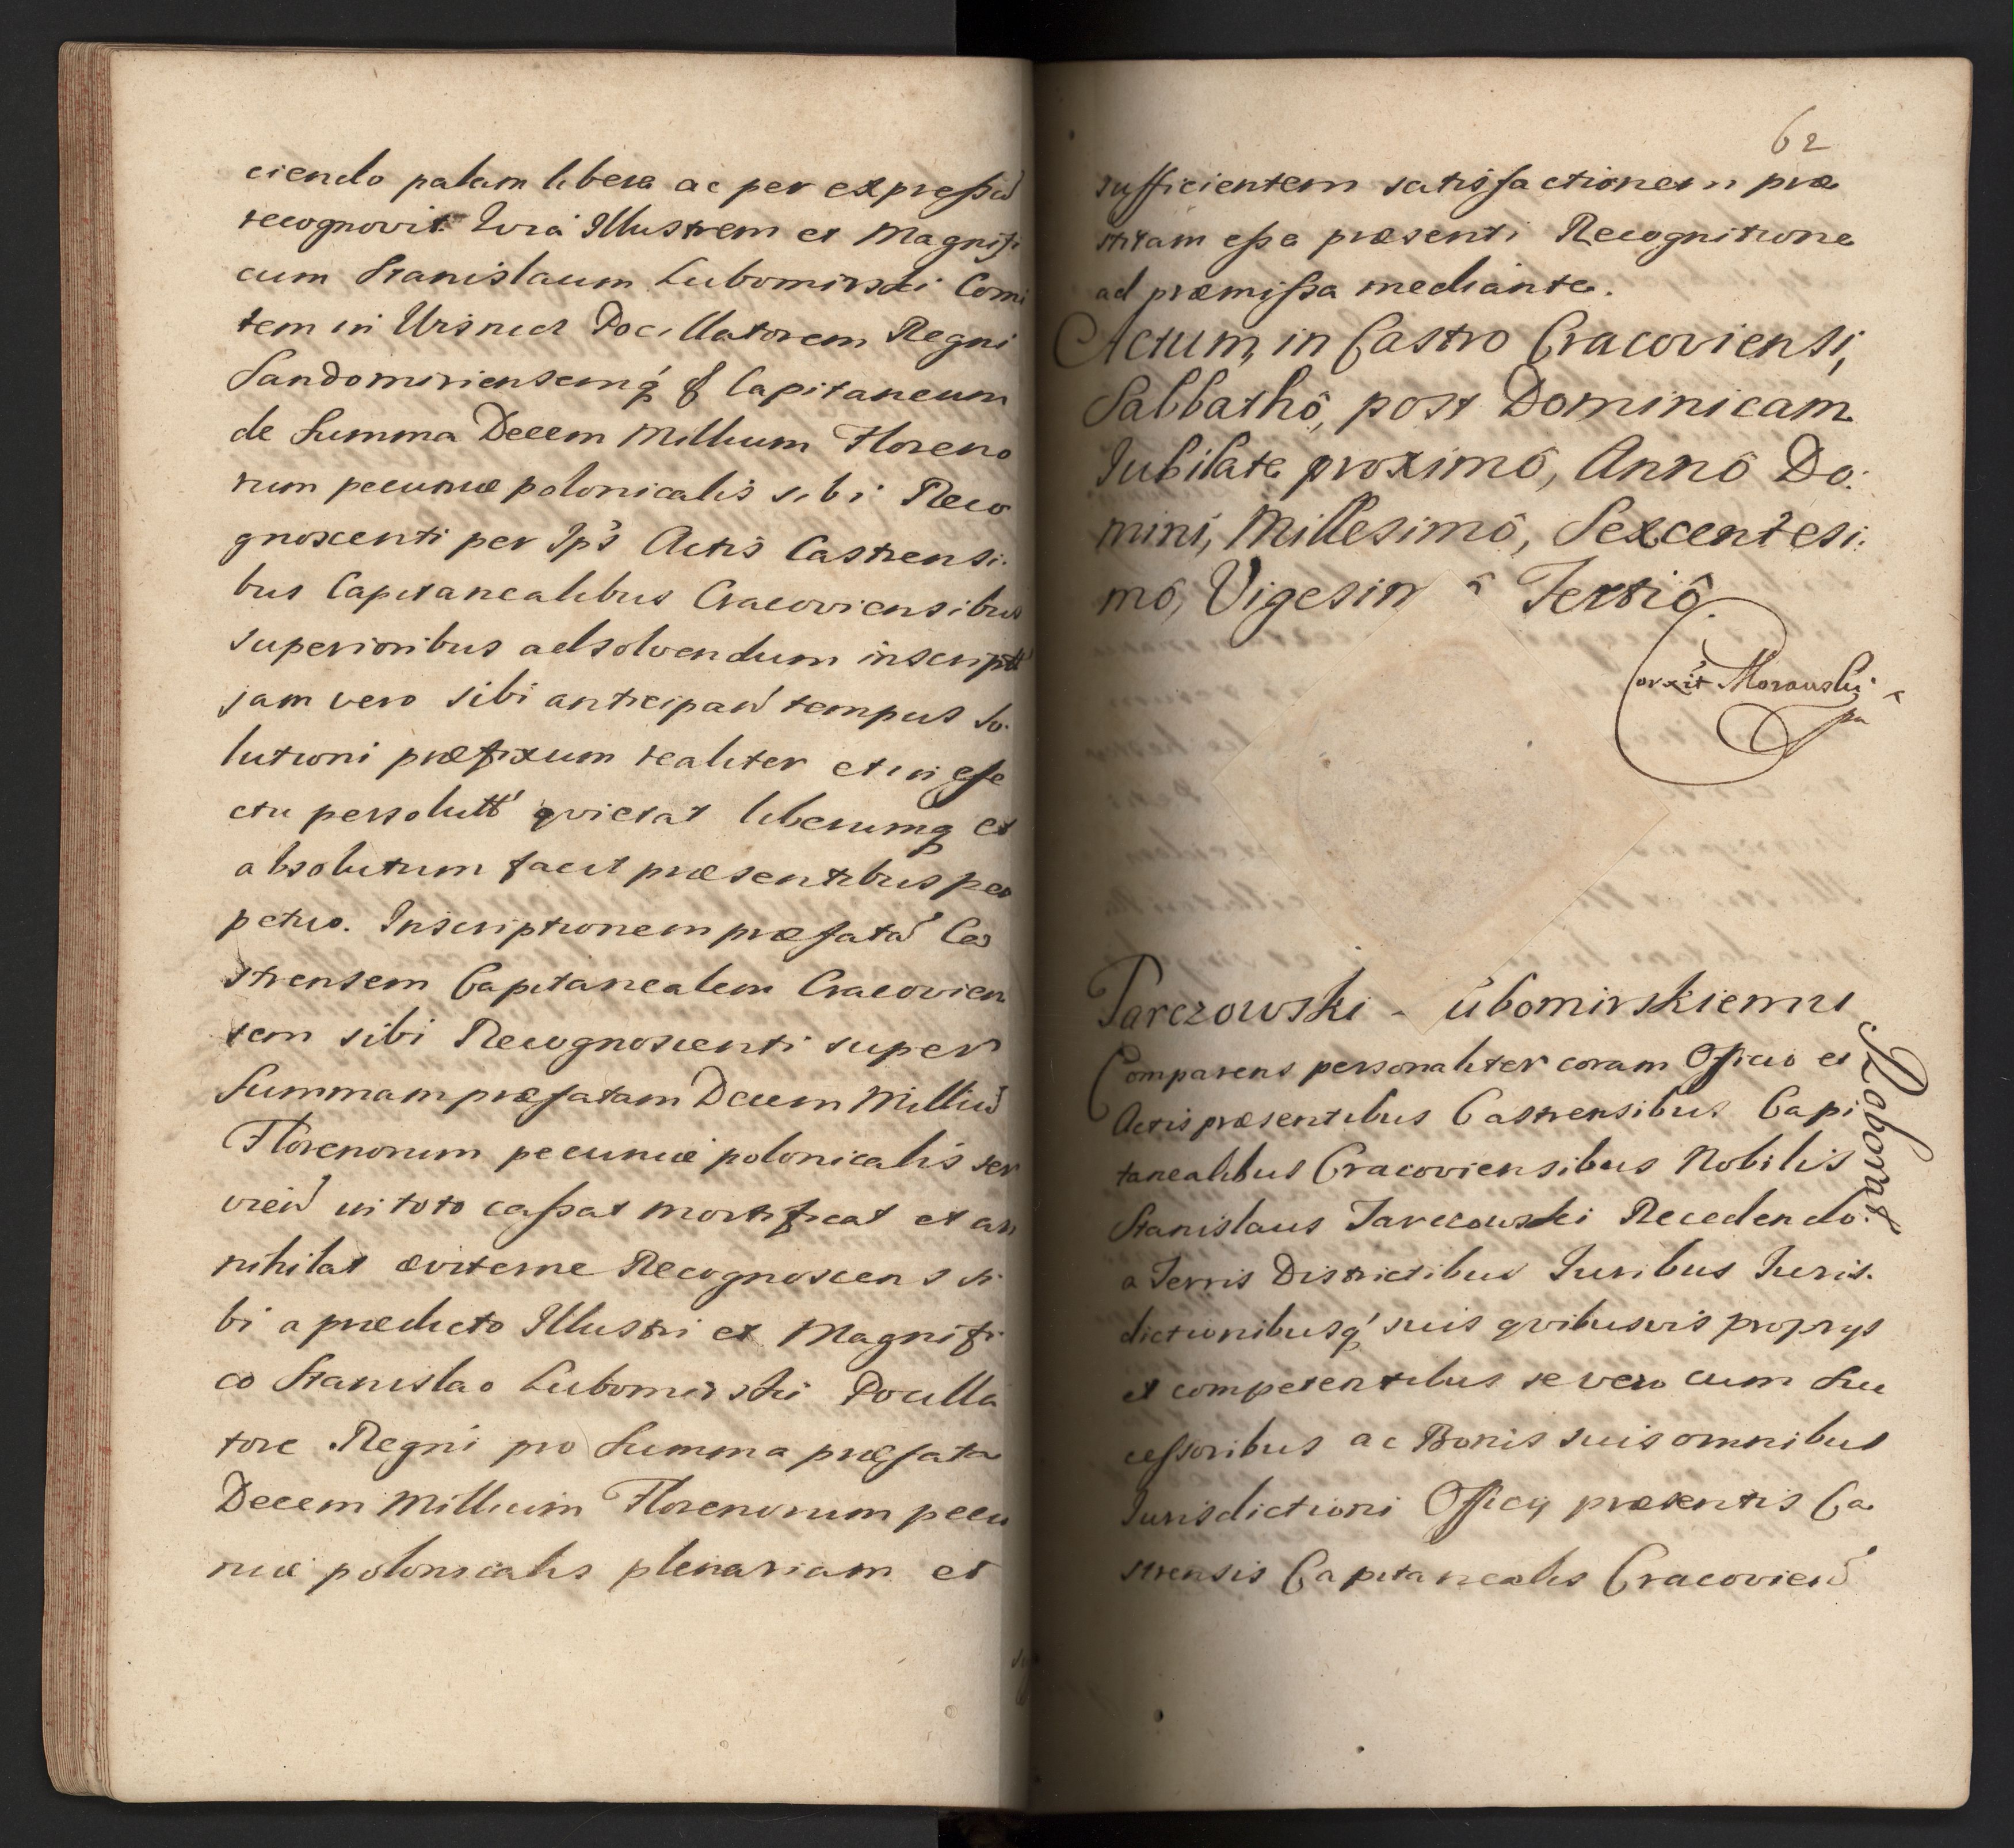 ciendo palam libere ac per expreßũ
recognovit. Quia Illustrem et Magnifi
cum Stanislaum Lubomirski Comi
tem in Wisnicz Pocillatorem Regni
Sandomiriensemq́ & Capitaneum
de Summa Decem Millium Floreno
rum pecuniæ polonicalis sibi Reco
gnoscenti per Ips Actis Castrensi:
bus Capitanealibus Cracoviensibus
superioribus adsolvendum inscript
jam vero sibi anticipaň tempus So:
lutioni præfixum realiter et in effe
ctu persolutt qvietat liberumq et
absolutum facit præsentibus per
petuo. Inscriptionem præfatã Ca
strensem Capitanealem Cracovien
sem sibi Recognoscenti super
Summam præfatam Decem Milliũ
Florenorum pecuniæ polonicalis ser
vieň in toto caßat mortificat et an
nihilat æviterne Recognoscens si
bi a prædicto Illustri et Magnifi
co Stanislao Lubomirski Pocilla
tore Regni pro Summa præfata
Decem Millium Florenorum pecu
niæ polonicalis plenariam et
62
sufficientem satisfactionem præ
stitam eße præsenti Recognitione
ad præmißa mediante.
Actum, in Castro Cracoviensi,
Sabbathô, post Dominicam
Jubilate proximô, Annô Do:
mini, Millesimô, Sexcentesi:
mô, Vigesim ô Tertiô
Corxit Morawski
pa
Tarczowski - ubomirskiemu
Roborat
Comparens personaliter coram Officio et
Actis præsentibus Castrensibus Capi
tanealibus Cracoviensibus Nobilis
Stanislaus Tarczowski Recedendo:
a Terris Districtibus Juribus Juris:
dictionibusq́ suis qvibusvis proprys
et competentibus se vero cum Suc
ceßoribus ac Bonis suis omnibus
Jurisdictioni Officij præsentis Ca
strensis Capitanealis Cracovieň